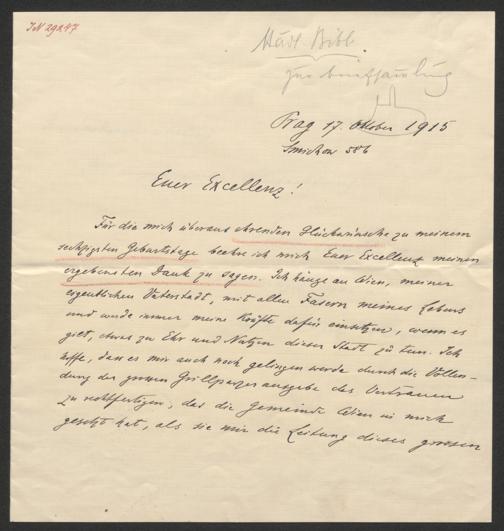 IN 29247
Städt. Bibl.
zur Briefsammlung
Prag 17. Oktober 1915
Smichow 586
Euer Excellenz!
Für die mich überaus ehrenden Glückwünsche zu meinem
sechzigsten Geburtstage beehre ich mich Euer Excellenz meinen
ergebensten Dank zu sagen. Ich hänge an Wien, meiner
eigentlichen Vaterstadt, mit allen Fasern meines Lebens
und werde immer meine Kräfte dafür einsetzen, wenn es
gielt, etwas zu Ehr und Nutzen dieser Stadt zu tun. Ich
hoffe, dass es mir auch noch gelingen werde durch die Vollen-
dung der grossen Grillparzerausgabe das Vertrauen
zu rechtfertigen, das die Gemeinde Wien in mich
gesetzt hat, als sie mir die Leitung dieses grossen